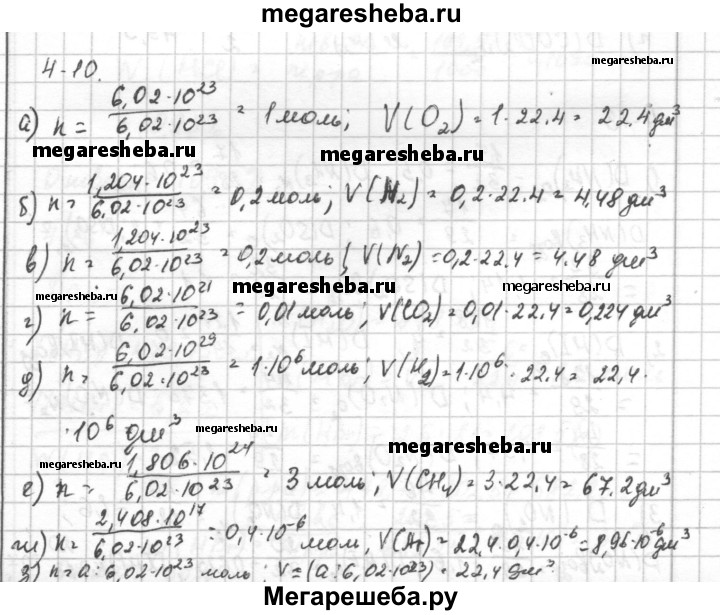 megaresheba.ru
4-10.
megaresheba.ru
а) n = 6,02·10²³ / 6,02·10²³ = 1 моль; V(O₂) = 1·22.4 = 22.4 дм³
megaresheba.ru megaresheba.ru
б) n = 1,204·10²³ / 6,02·10²³ = 0,2 моль; V(N₂) = 0,2·22.4 = 4,48 дм³
в) n = 1,204·10²³ / 6,02·10²³ = 0,2 моль; V(N₂) = 0,2·22,4 = 4.48 дм³
megaresheba.ru megaresheba.ru megaresheba.ru
г) n = 6,02·10²¹ / 6,02·10²³ = 0,01 моль; V(CO₂) = 0,01·22.4 = 0,224 дм³
д) n = 6,02·10²⁹ / 6,02·10²³ = 1·10⁶ моль; V(H₂) = 1·10⁶·22.4 = 22,4·
·10⁶ дм³
megaresheba.ru megaresheba.ru
megaresheba.ru
е) n = 1,806·10²⁴ / 6,02·10²³ = 3 моль; V(CH₄) = 3·22,4 = 67.2 дм³
ж) n = 2,408·10¹⁷ / 6,02·10²³ = 0,4·10⁻⁶ моль, V(Ar) = 22,4·0,4·10⁻⁶ = 8,96·10⁻⁶ дм³
з) n = a : 6,02·10²³ моль; V = (a : 6,02·10²³)·22,4 дм³
megaresheba.ru
Мегарешеба.ру